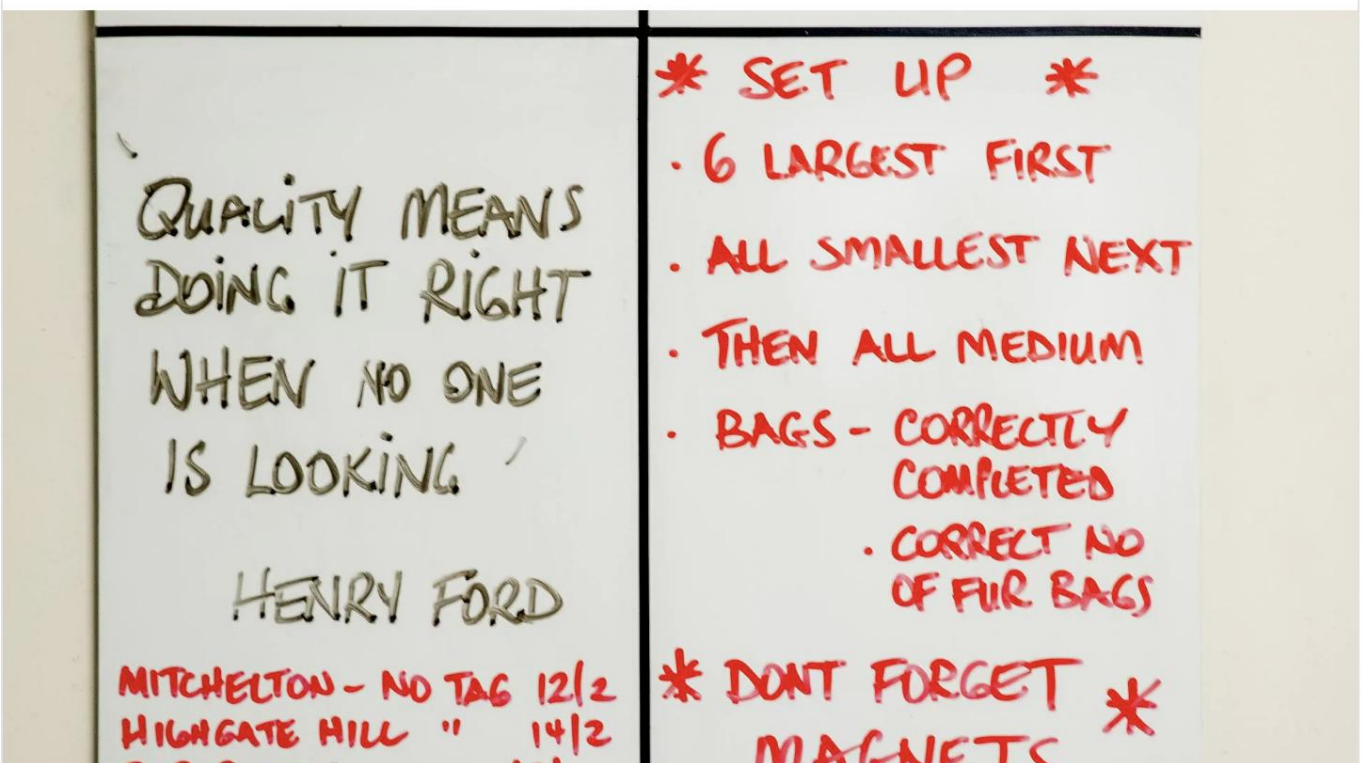 QUALITY MEANS
DOING IT RIGHT
WHEN NO ONE
IS LOOKING
HENRY FORD
MITCHELTON - NO TAG 12/2
HIGHGATE HILL " 14/2
* SET UP *
· 6 LARGEST FIRST
· ALL SMALLEST NEXT
· THEN ALL MEDIUM
· BAGS - CORRECTLY
COMPLETED
· CORRECT NO
OF FUR BAGS
* DONT FORGET *
MAGNETS